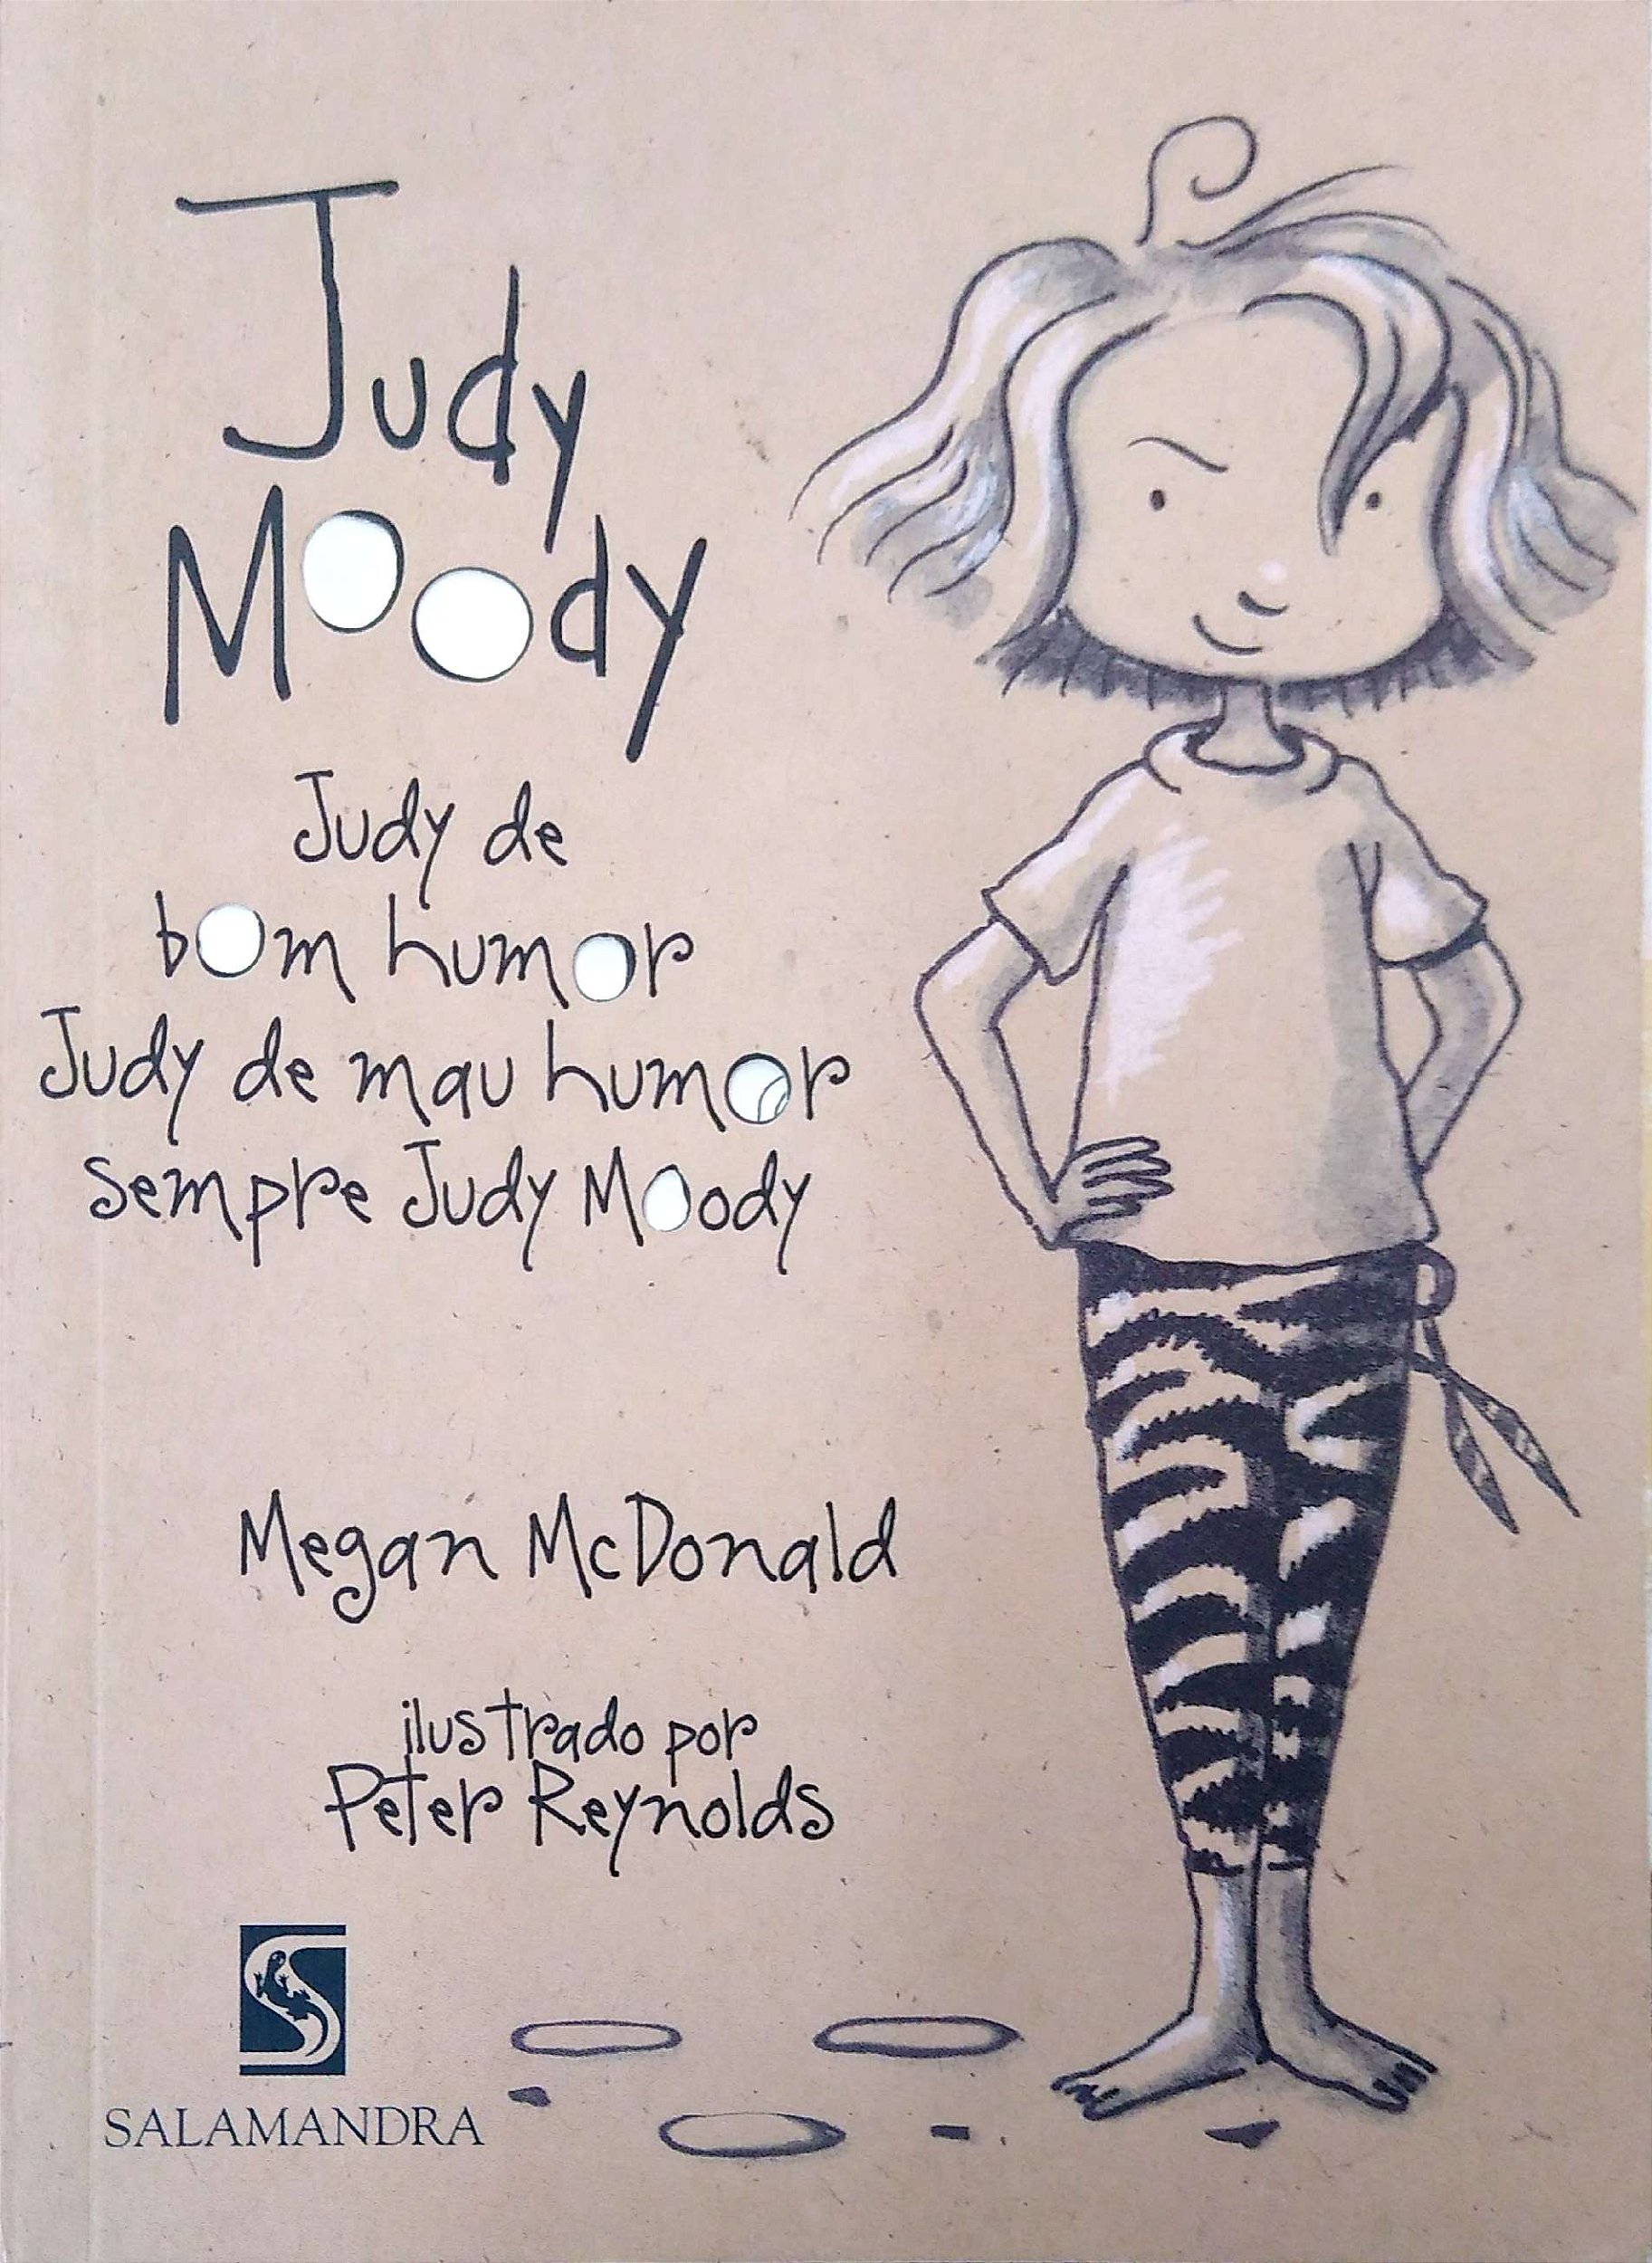 Judy
Moody
Judy de
bom humor
Judy de mau humor
sempre Judy Moody
Megan McDonald
ilustrado por
Peter Reynolds
SALAMANDRA